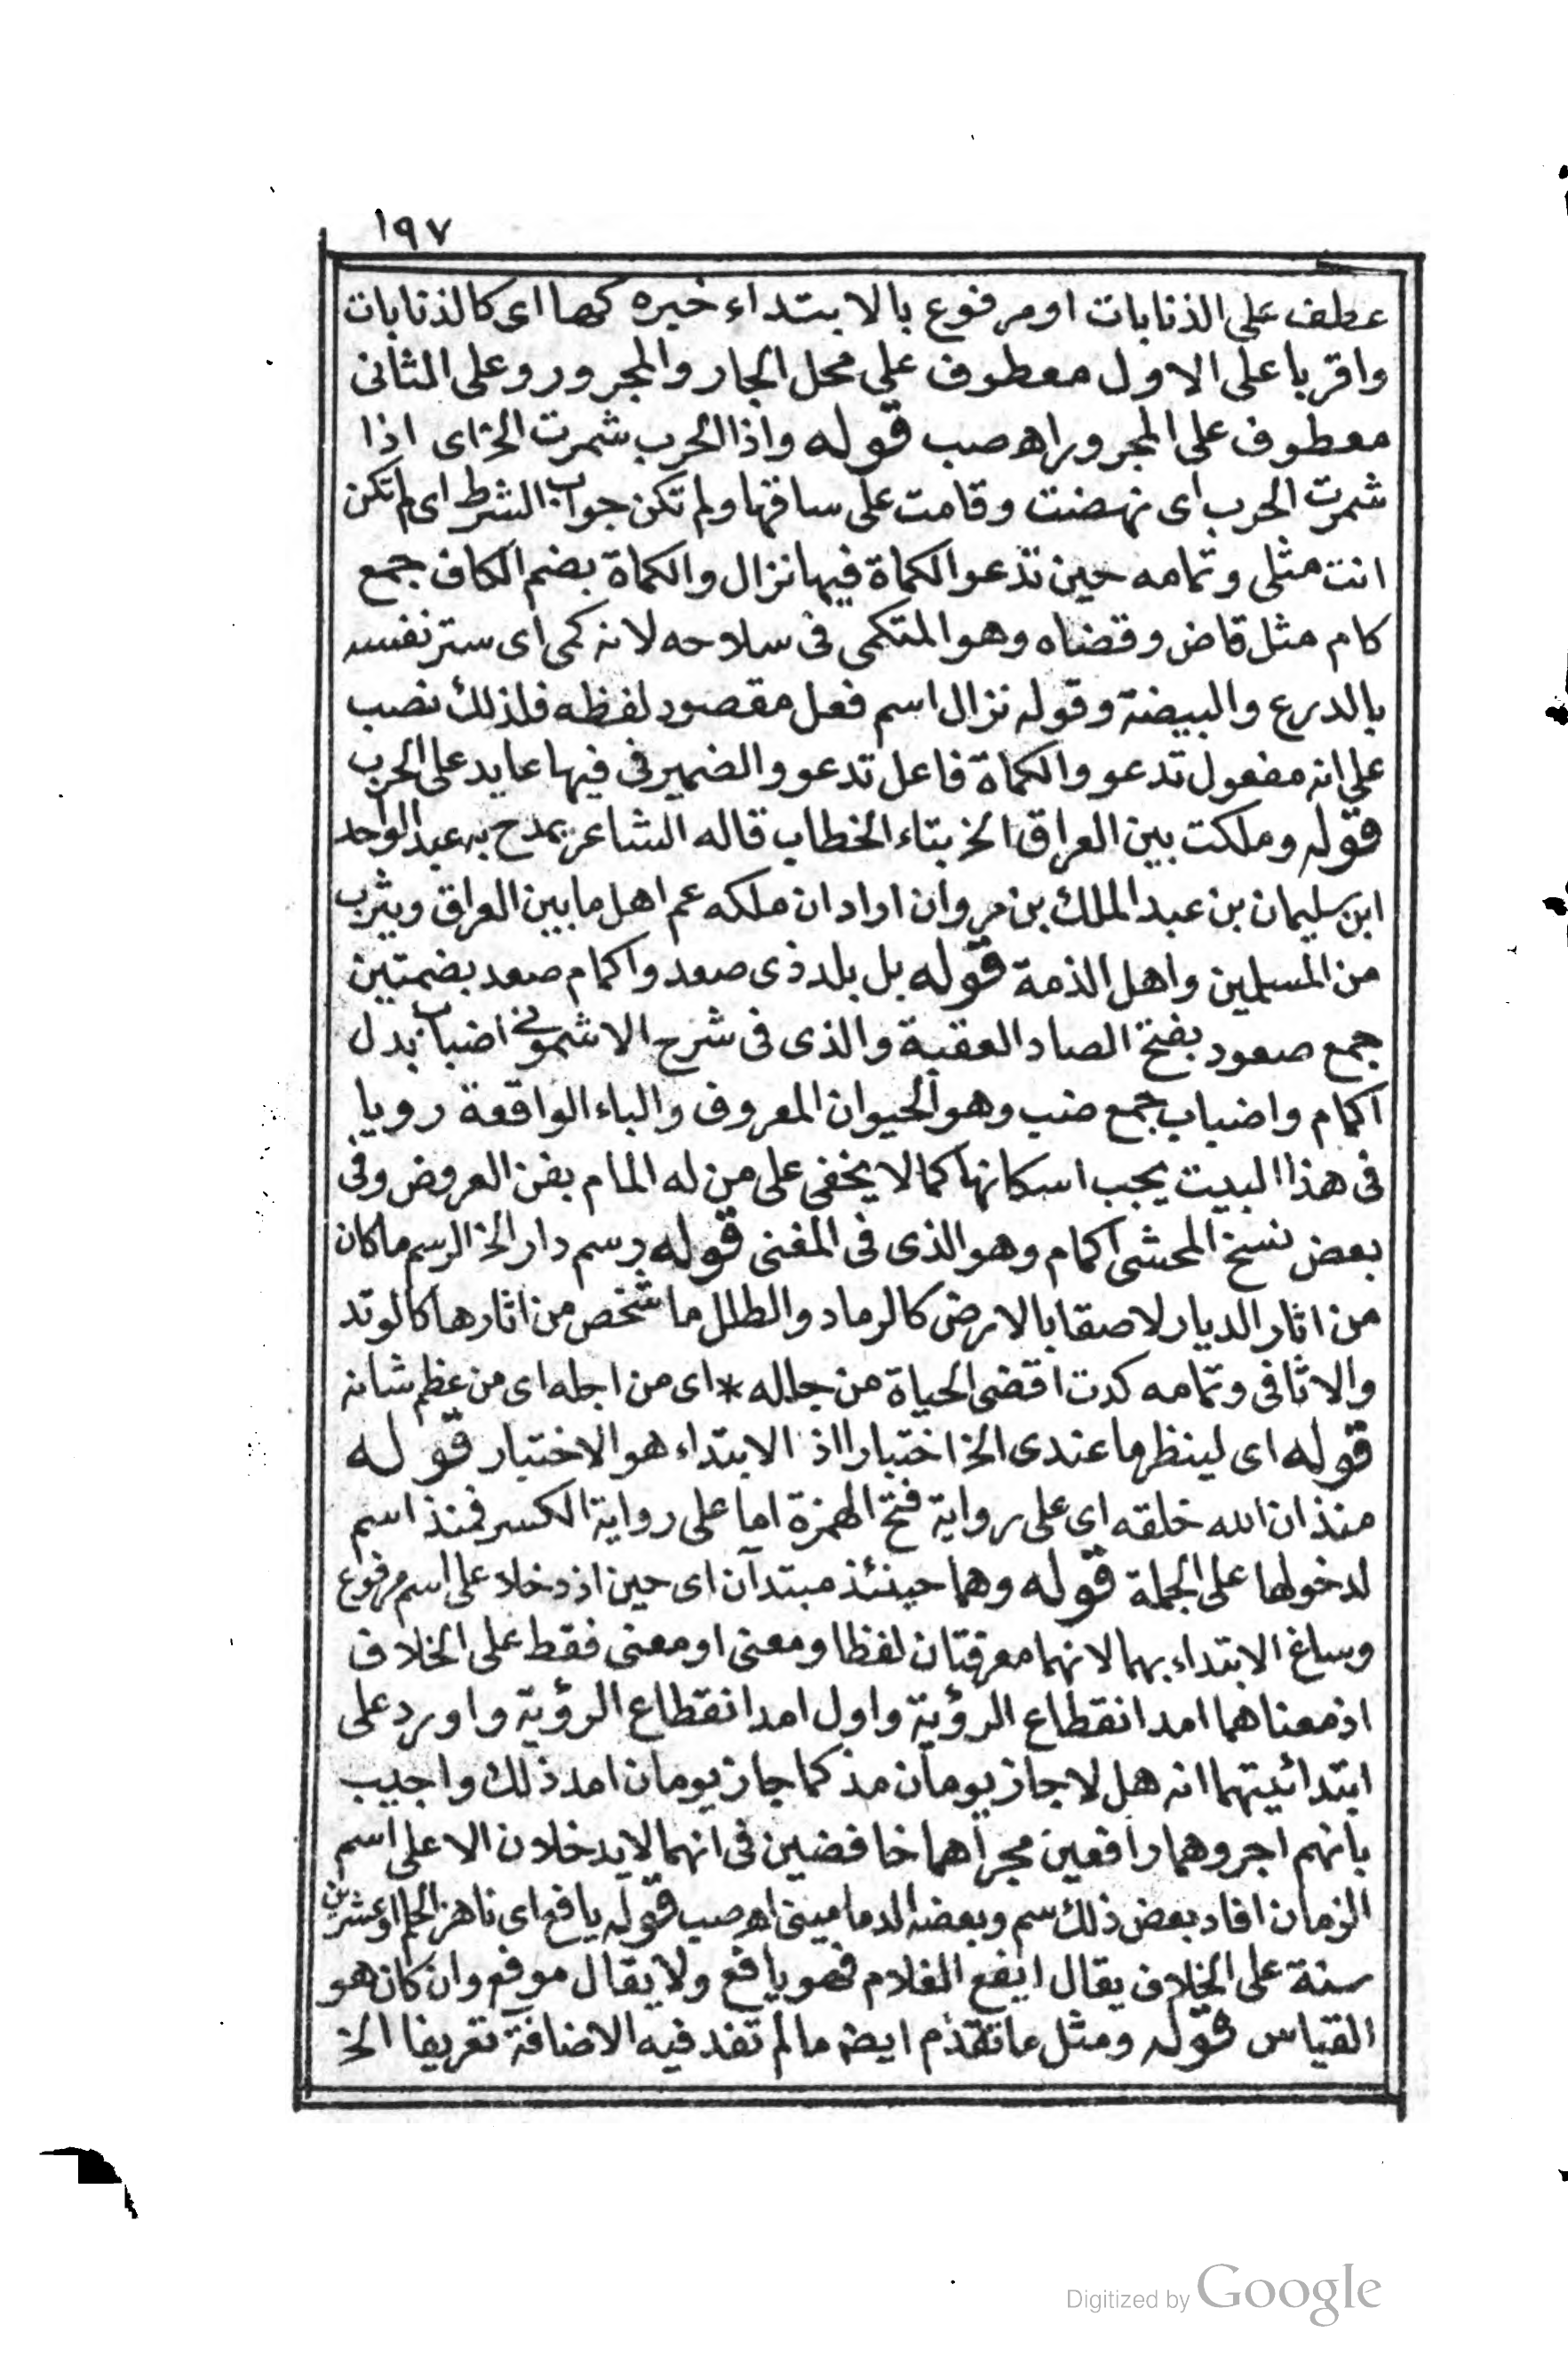 ١٩٧
عطف على الذنابات او مرفوع بالابتداء خبره كها اى كالذنابات
واقربا على الاول معطوف على محل الجار والمجرور وعلى الثانى
معطوف على المجرور اه صب قوله واذا الحرب شمرت الخ اى اذا
شمرت الحرب اى نهضت وقامت على ساقها ولم تكن جواب الشرط اى لم تكن
انت مثلى وتمامه حين تدعو الكماة فيها نزال والكماة بضم الكاف جمع
كام مثل قاض وقضاه وهو المتكمى فى سلاحه لانه كمى اى ستر نفسه
بالدرع والبيضة وقوله نزال اسم فعل مقصود لفظه فلذلك نصب
على انه مفعول تدعو والكماة فاعل تدعو والضمير فى فيها عايد على الحرب
قوله وملكت بين العراق الخ بتاء الخطاب قاله الشاعر يمدح به عبد الواحد
ابن سليمان بن عبد الملك بن مروان اراد ان ملكه عم اهل ما بين العراق ويثرب
من المسلمين واهل الذمة قوله بل بلد ذى صعد واكمام صعد بضمتين
جمع صعود بفتح الصاد العقبة والذى فى شرح الاشمونى اضباب بدل
اكمام واضباب جمع ضب وهو الحيوان المعروف والباء الواقعة رويا
فى هذا البيت يجب اسكانها كما لا يخفى على من له المام بفن العروض وفى
بعض نسخ المحشى اكمام وهو الذى فى المغنى قوله رسم دار الخ الرسم ماكان
من اثار الديار لاصقا بالارض كالرماد والطلل ما شخص من اثارها كالوتد
والاثافى وتمامه كدت اقضى الحياة من جلله * اى من اجله اى من عظم شانه
قوله اى لينظر ما عندى الخ اختبارا اذ الابتداء هو الاختبار قوله
منذ ان الله خلقه اى على رواية فتح الهمزة اما على رواية الكسر فمنذ اسم
لدخولها على الجملة قوله وهما حينئذ مبتدآن اى حين اذ دخلا على اسم مرفوع
وساغ الابتداء بهما لانهما معرفتان لفظا ومعنى او معنى فقط على الخلاف
اذ معناهما امد انقطاع الرؤية واول امد انقطاع الرؤية واورد على
ابتدائيتهما انه هل لا جاز يومان مذ كما جاز يومان امد ذلك واجيب
بانهم اجروهما رافعين مجراهما خافضين فى انهما لا يدخلان الا على اسم
الزمان افاد بعض ذلك سم وبعضه الدمامينى اه صب قوله يافع اى ناهز الحلم او عشرين
سنة على الخلاف يقال ايفع الغلام فهو يافع ولا يقال موفع وان كان هو
القياس قوله ومثل ما تقدم ايضه ما لم تفد فيه الاضافة تعريفا الخ
Digitized by Google